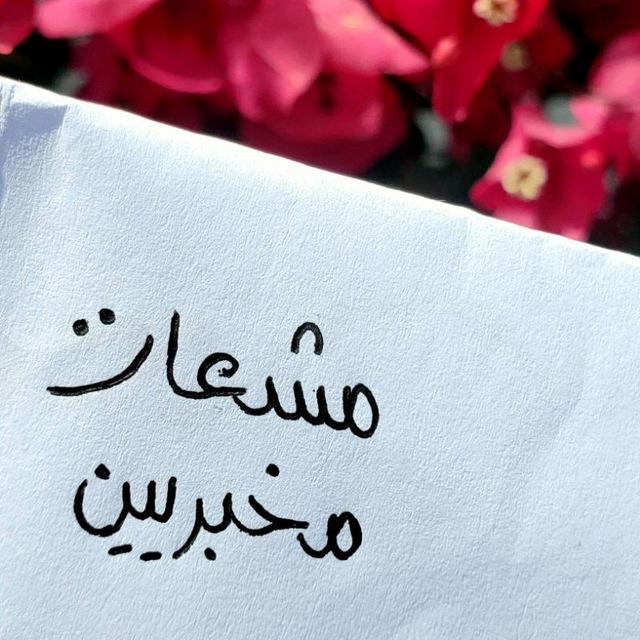 مشعات
مخبريين